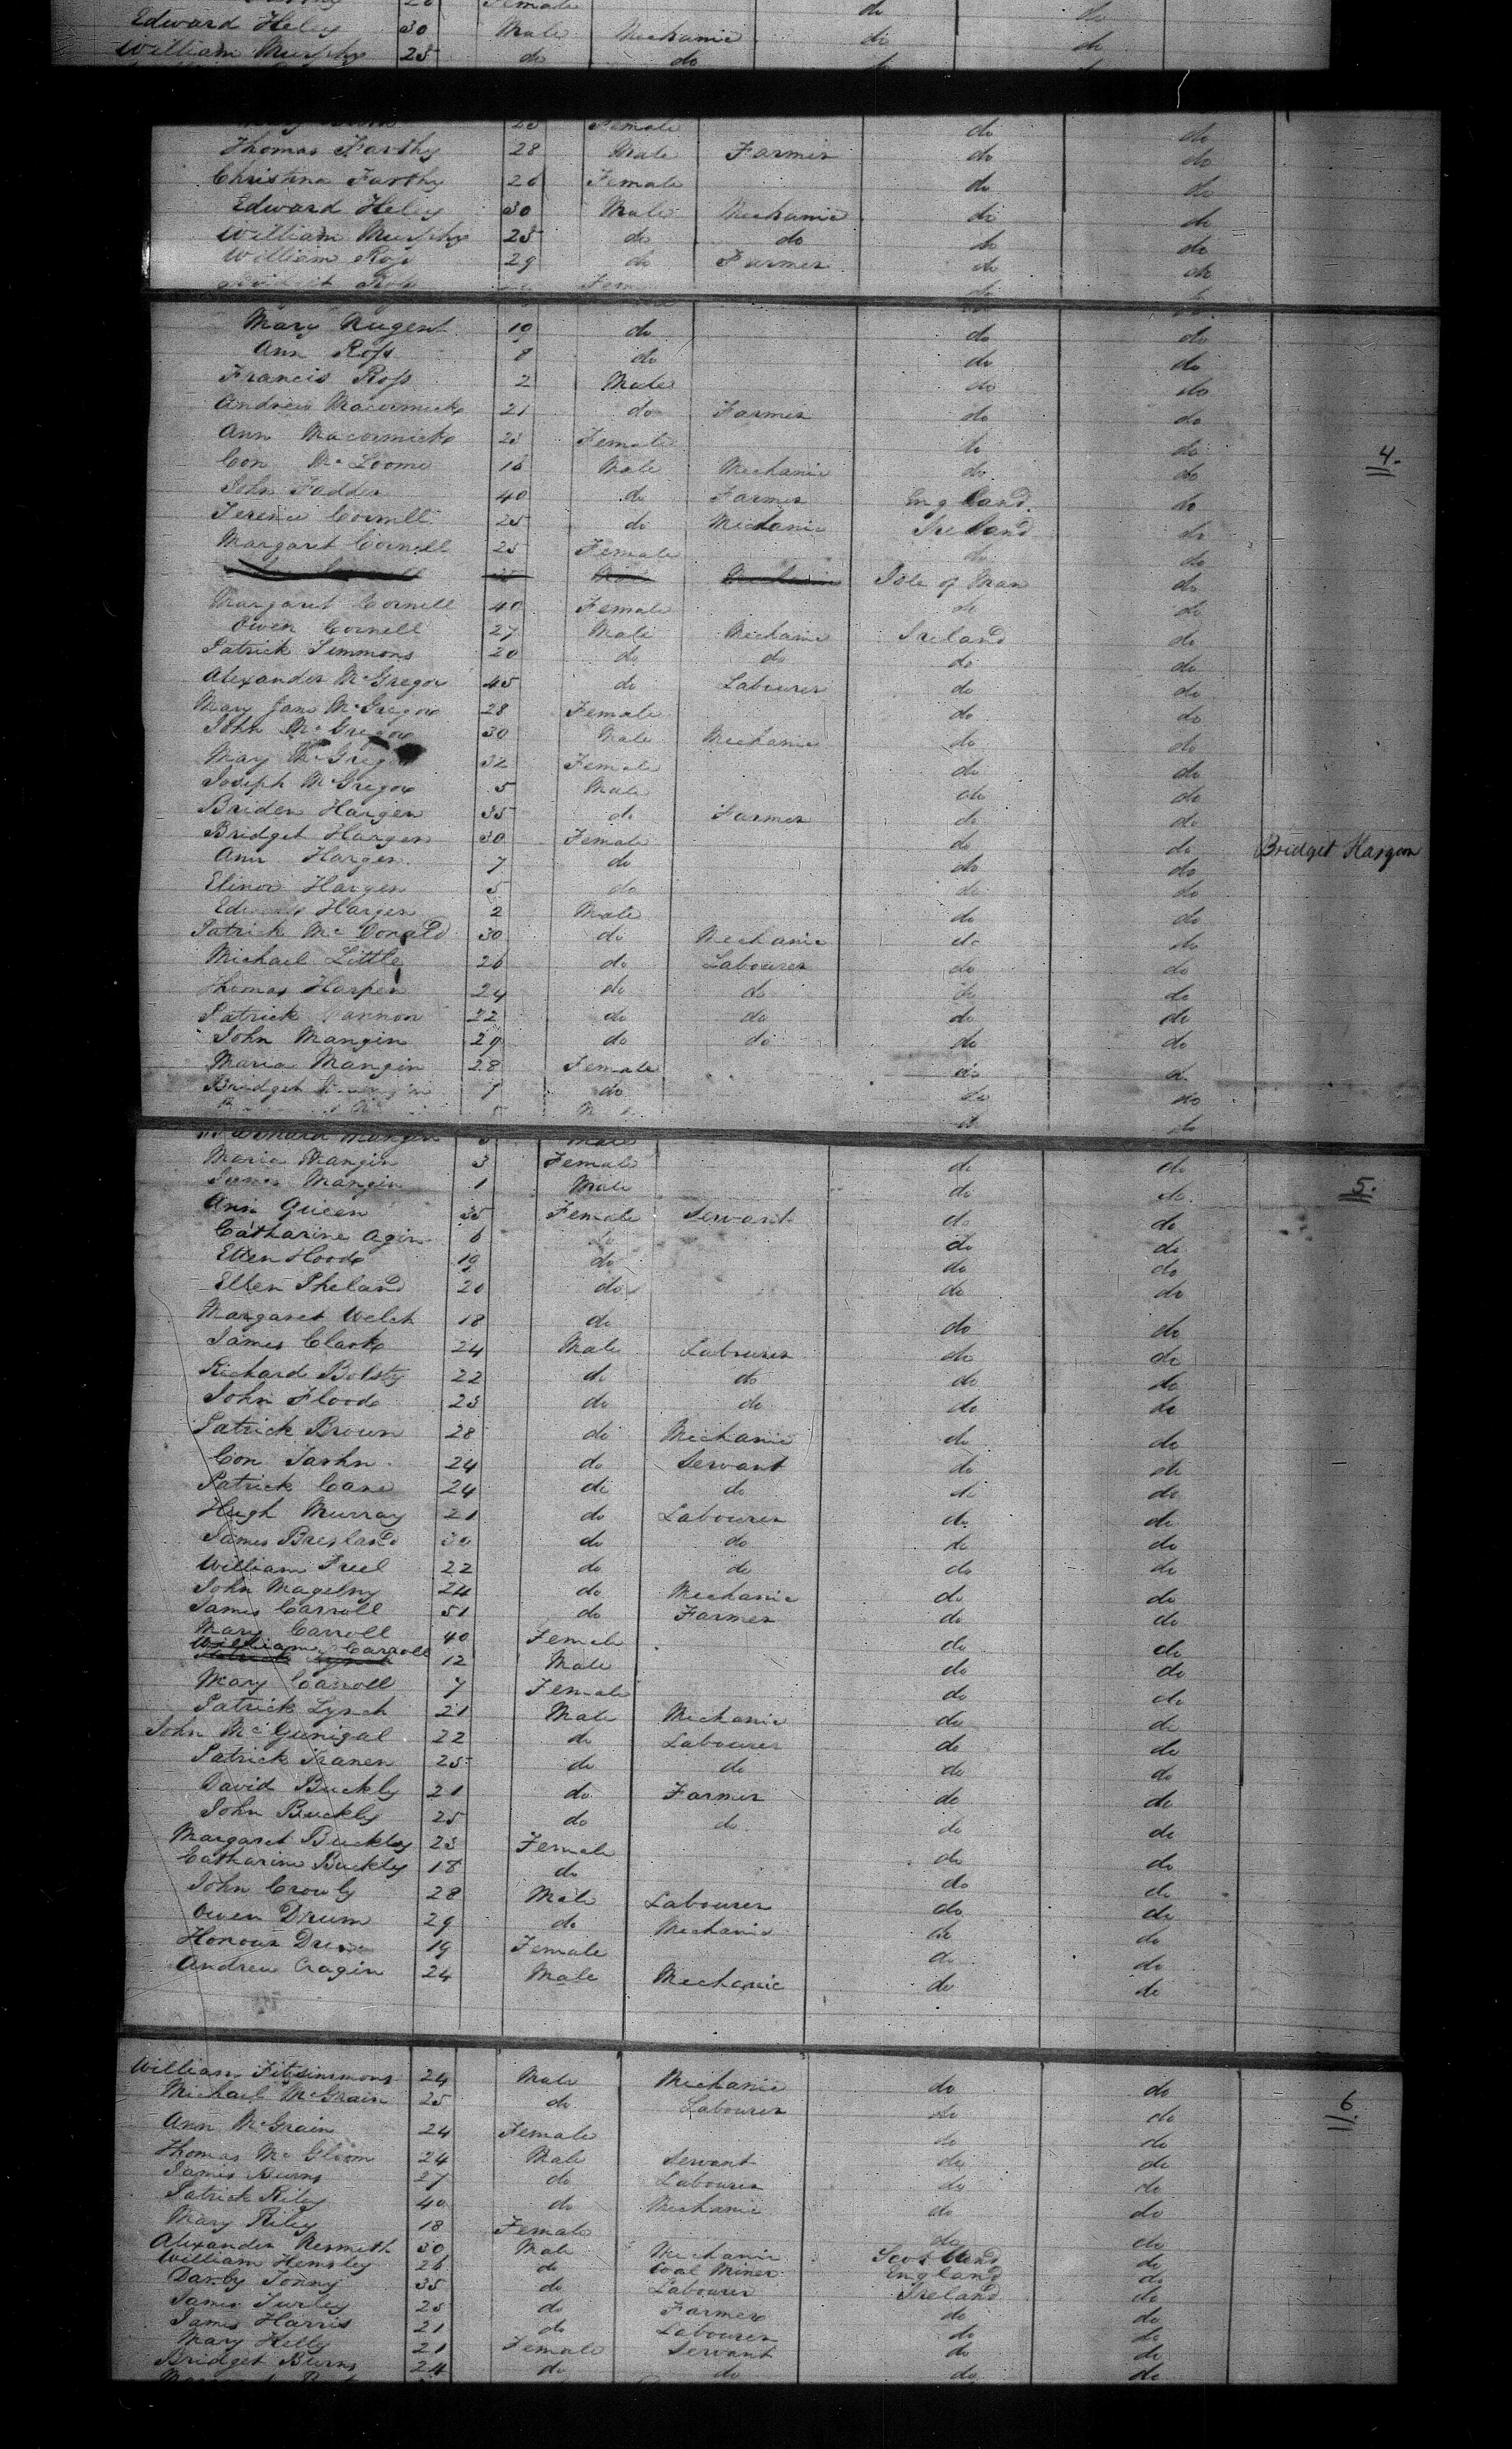 Female do do
Edward Heley 30 Male Mechanic do do
William Murphy 25 do do
Female do do
Thomas Farthy 28 Male Farmer do do
Christina Farthy 26 Female do do
Edward Heley 30 Male Mechanic do do
William Murphy 25 do do do do
William Ross 29 do Farmer do do
Ross do
Mary Nugent 19 do do do
Ann Ross 8 do do do
Francis Ross 2 Male do do
Andrew Macormick 21 do Farmer do do
Ann Macormick 23 Female do do
Con Mc Loome 16 Male Mechanic do do 4.
John Fadder 40 do Farmer England do
Terence Cornell 25 do Mechanic Ireland do
Margaret Cornell 25 Female do do
Isle of Man do
Margaret Cornell 40 Female do do
Owen Cornell 27 Male Mechanic Ireland do
Patrick Simmons 20 do do do do
Alexander McGregor 45 do Labourer do do
Mary Jane McGregor 28 Female do do
John McGregor 30 Male Mechanic do do
Mary McGregor 32 Female do do
Joseph McGregor 5 Male do do
Briden Hargen 35 do Farmer do do
Bridget Hargen 30 Female do do Bridget Hargon
Ann Hargen 7 do do do
Elinor Hargen 5 do do do
Hargen 2 Male do do
Patrick Mc Donald 30 do Mechanic do do
Michael Little 26 do Labourer do do
Thomas Harpen 24 do do do do
Patrick 22 do do do do
John Mangin 29 do do do do
Maria Mangin 28 Female do do
Bridget 7 do do do
do do
Mangin Male
Maria Mangin 3 Female do do
James Mangin 1 Male do do 5.
Ann Queen 35 Female Servant do do
Catharine Agin 6 do do do
Ellen Hood 19 do do do
Ellen Pheland 20 do do do
Margaret Welch 18 do do do
James Clark 24 Male Labourer do do
Richard Bolsty 22 do do do do
John Flood 23 do do do do
Patrick Brown 28 do Mechanic do do
Con 24 do Servant do do
Patrick Cane 24 do do do do
Hugh Murray 21 do Labourer do do
James Bresland 30 do do do do
William Freel 22 do do do do
John Magelny 24 do Mechanic do do
James Carroll 51 do Farmer do do
Mary Carroll 40 Female do do
William Carroll 12 Male do do
Mary Carroll 7 Female do do
Patrick Lynch 21 Male Mechanic do do
John McGunigal 22 do Labourer do do
Patrick Tranen 25 do do do do
David Buckly 21 do Farmer do do
John Buckly 25 do do do do
Margaret Buckley 23 Female do do
Catharine Buckley 18 do do do
John Crowly 28 Male Labourer do do
Owen Drum 29 do Mechanic do do
Honour Drum 19 Female do do
Andrew Cragin 24 Male Mechanic do do
William Fitzsimmons 24 Male Mechanic do do
Michael McGrain 25 do Labourer do do 6.
Ann McGrain 24 Female do do
Thomas Mc Gloom 24 Male Servant do do
James Burns 27 do Labourer do do
Patrick Riley 40 do Mechanic do do
Mary Riley 18 Female do do
Alexander Nesmeth 30 Male Mechanic Scotland do
William Hemsley 26 do Coal Miner England do
Darby Tonny 35 do Labourer Ireland do
James Turley 25 do Farmer do do
James Harris 21 do Labourer do do
Mary Helly 21 Female Servant do do
Bridget Burns 24 do do do do